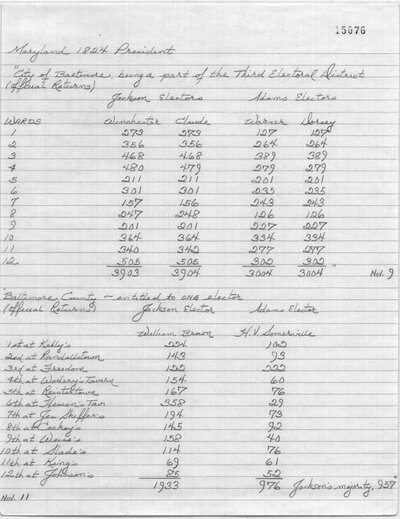 15076
Maryland 1824 President
"City of Baltimore, being a part of the Third Electoral District
(Official Returns) Jackson Electors Adams Electors
WARDS Winchester Claude Warner Dorsey
1 273 273 127 127
2 356 356 264 264
3 468 468 389 389
4 480 479 279 279
5 211 211 201 201
6 301 301 235 235
7 157 156 243 243
8 247 248 126 126
9 201 201 227 227
10 364 364 334 334
11 340 342 277 277
12 505 505 302 302
3903 3904 3004 3004" Nov. 9
"Baltimore County – entitled to one elector
(Official Returns) Jackson Elector Adams Elector
William Brown H.V. Somerville
1st at Kelly's 224 102
2nd at Randallstown 143 93
3rd at Freedom 122 222
4th at Tavern 154 60
5th at Reisterstown 167 76
6th at Tav 358 29
7th at Jos Sheffer's 194 73
8th at Cockey's 145 92
9th at Weise's 158 40
10th at Slade's 114 76
11th at King's 69 61
12th at Johnson's 85 52
1933 976 Jackson's majority, 957"
Nov. 11